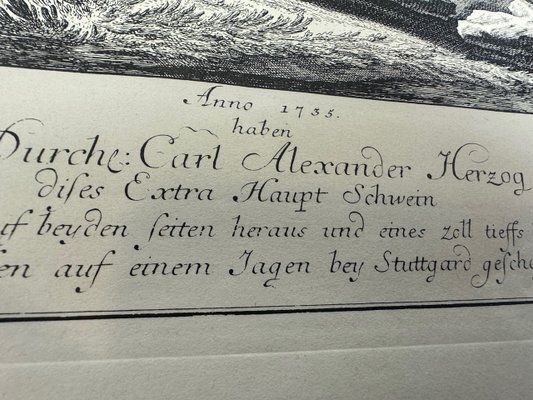 Anno 1735.
haben
Durchl: Carl Alexander Herzog
dises Extra Haupt Schwein
beyden seiten heraus und eines zoll tieffs
auf einem Jagen bey Stuttgard